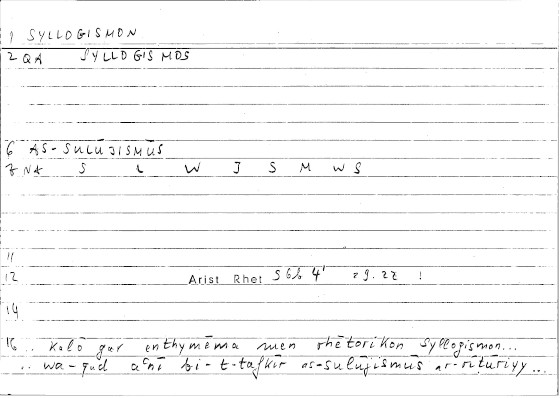 1 SYLLOGISMON
2 QA SYLLOGISMOS
6 AS-SULŪJISMŪS
7 NA S L W J S M W S
11
12 Arist Rhet 56b 4' = 9.22 !
14
16 .. kalō gar enthymēma men rhētorikon syllogismon...
.. wa- aʿnī bi-t-tafkīr as-sulūjismūs ar-rīṭūrīyy ...